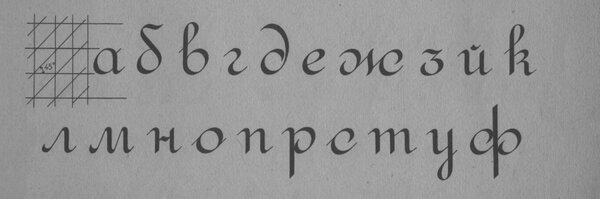 45° а б в г д е ж з й к
л м н о п р с т у ф